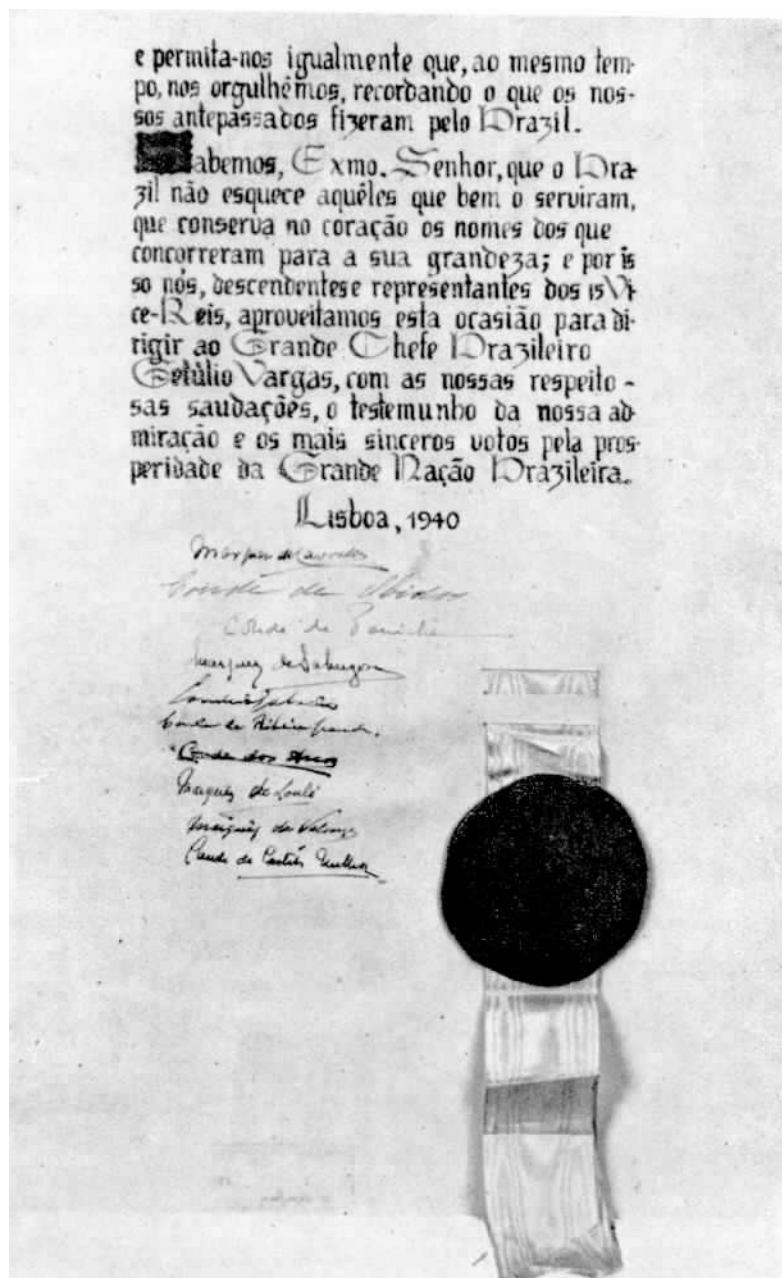 e permita-nos igualmente que, ao mesmo tem-
po, nos orgulhêmos, recordando o que os nos-
sos antepassados fizeram pelo Brazil.
Sabemos, Exmo. Senhor, que o Bra-
zil não esquece aquêles que bem o serviram,
que conserva no coração os nomes dos que
concorreram para a sua grandeza; e por is
so nós, descendentes e representantes dos 15 Vi-
ce-Reis, aproveitamos esta ocasião para di-
rigir ao Grande Chefe Brazileiro
Getúlio Vargas, com as nossas respeito-
sas saudações, o testemunho da nossa ad-
miração e os mais sinceros votos pela pros-
peridade da Grande Nação Brazileira.
Lisboa, 1940
Marquez de Lavradio
Conde de Obidos
Conde de
Marquez de Sabugosa
Conde da Ribeira Grande
Conde dos Arcos
Marquez de Loulé
Marquez de Valença
Conde de Castello Melhor